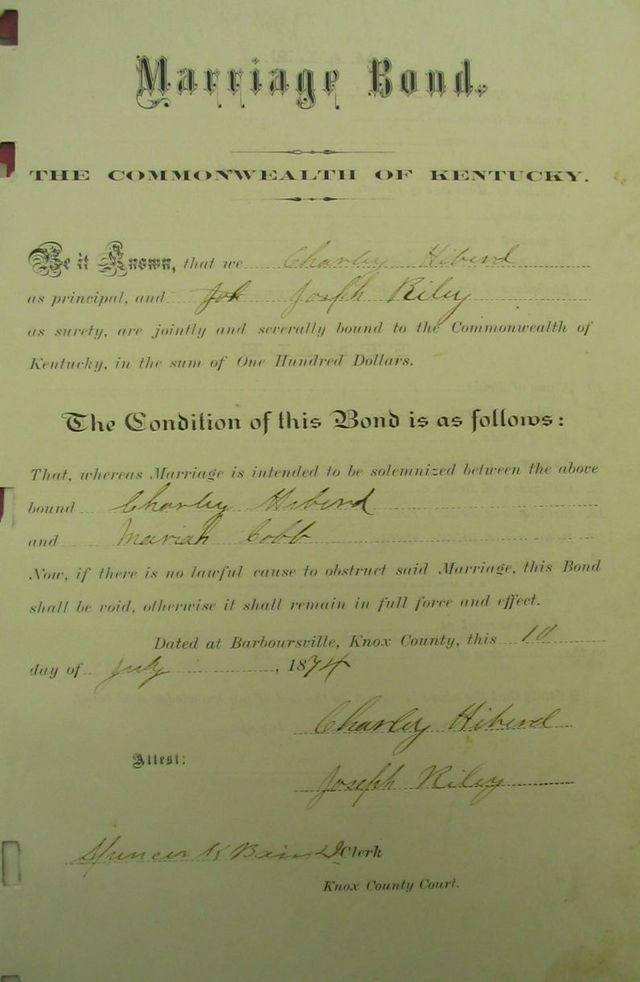 Marriage Bond.
THE COMMONWEALTH OF KENTUCKY.
Be it Known, that we Charley Hiberd
as principal, and Joseph Riley
as surety, are jointly and severally bound to the Commonwealth of
Kentucky, in the sum of One Hundred Dollars.
The Condition of this Bond is as follows:
That, whereas Marriage is intended to be solemnized between the above
bound Charley Hiberd
and Mariah Cobb
Now, if there is no lawful cause to obstruct said Marriage, this Bond
shall be void, otherwise it shall remain in full force and effect.
Dated at Barboursville, Knox County, this 10
day of July, 1874
Charley Hiberd
Attest:
Joseph Riley
Spencer K Clerk
Knox County Court.